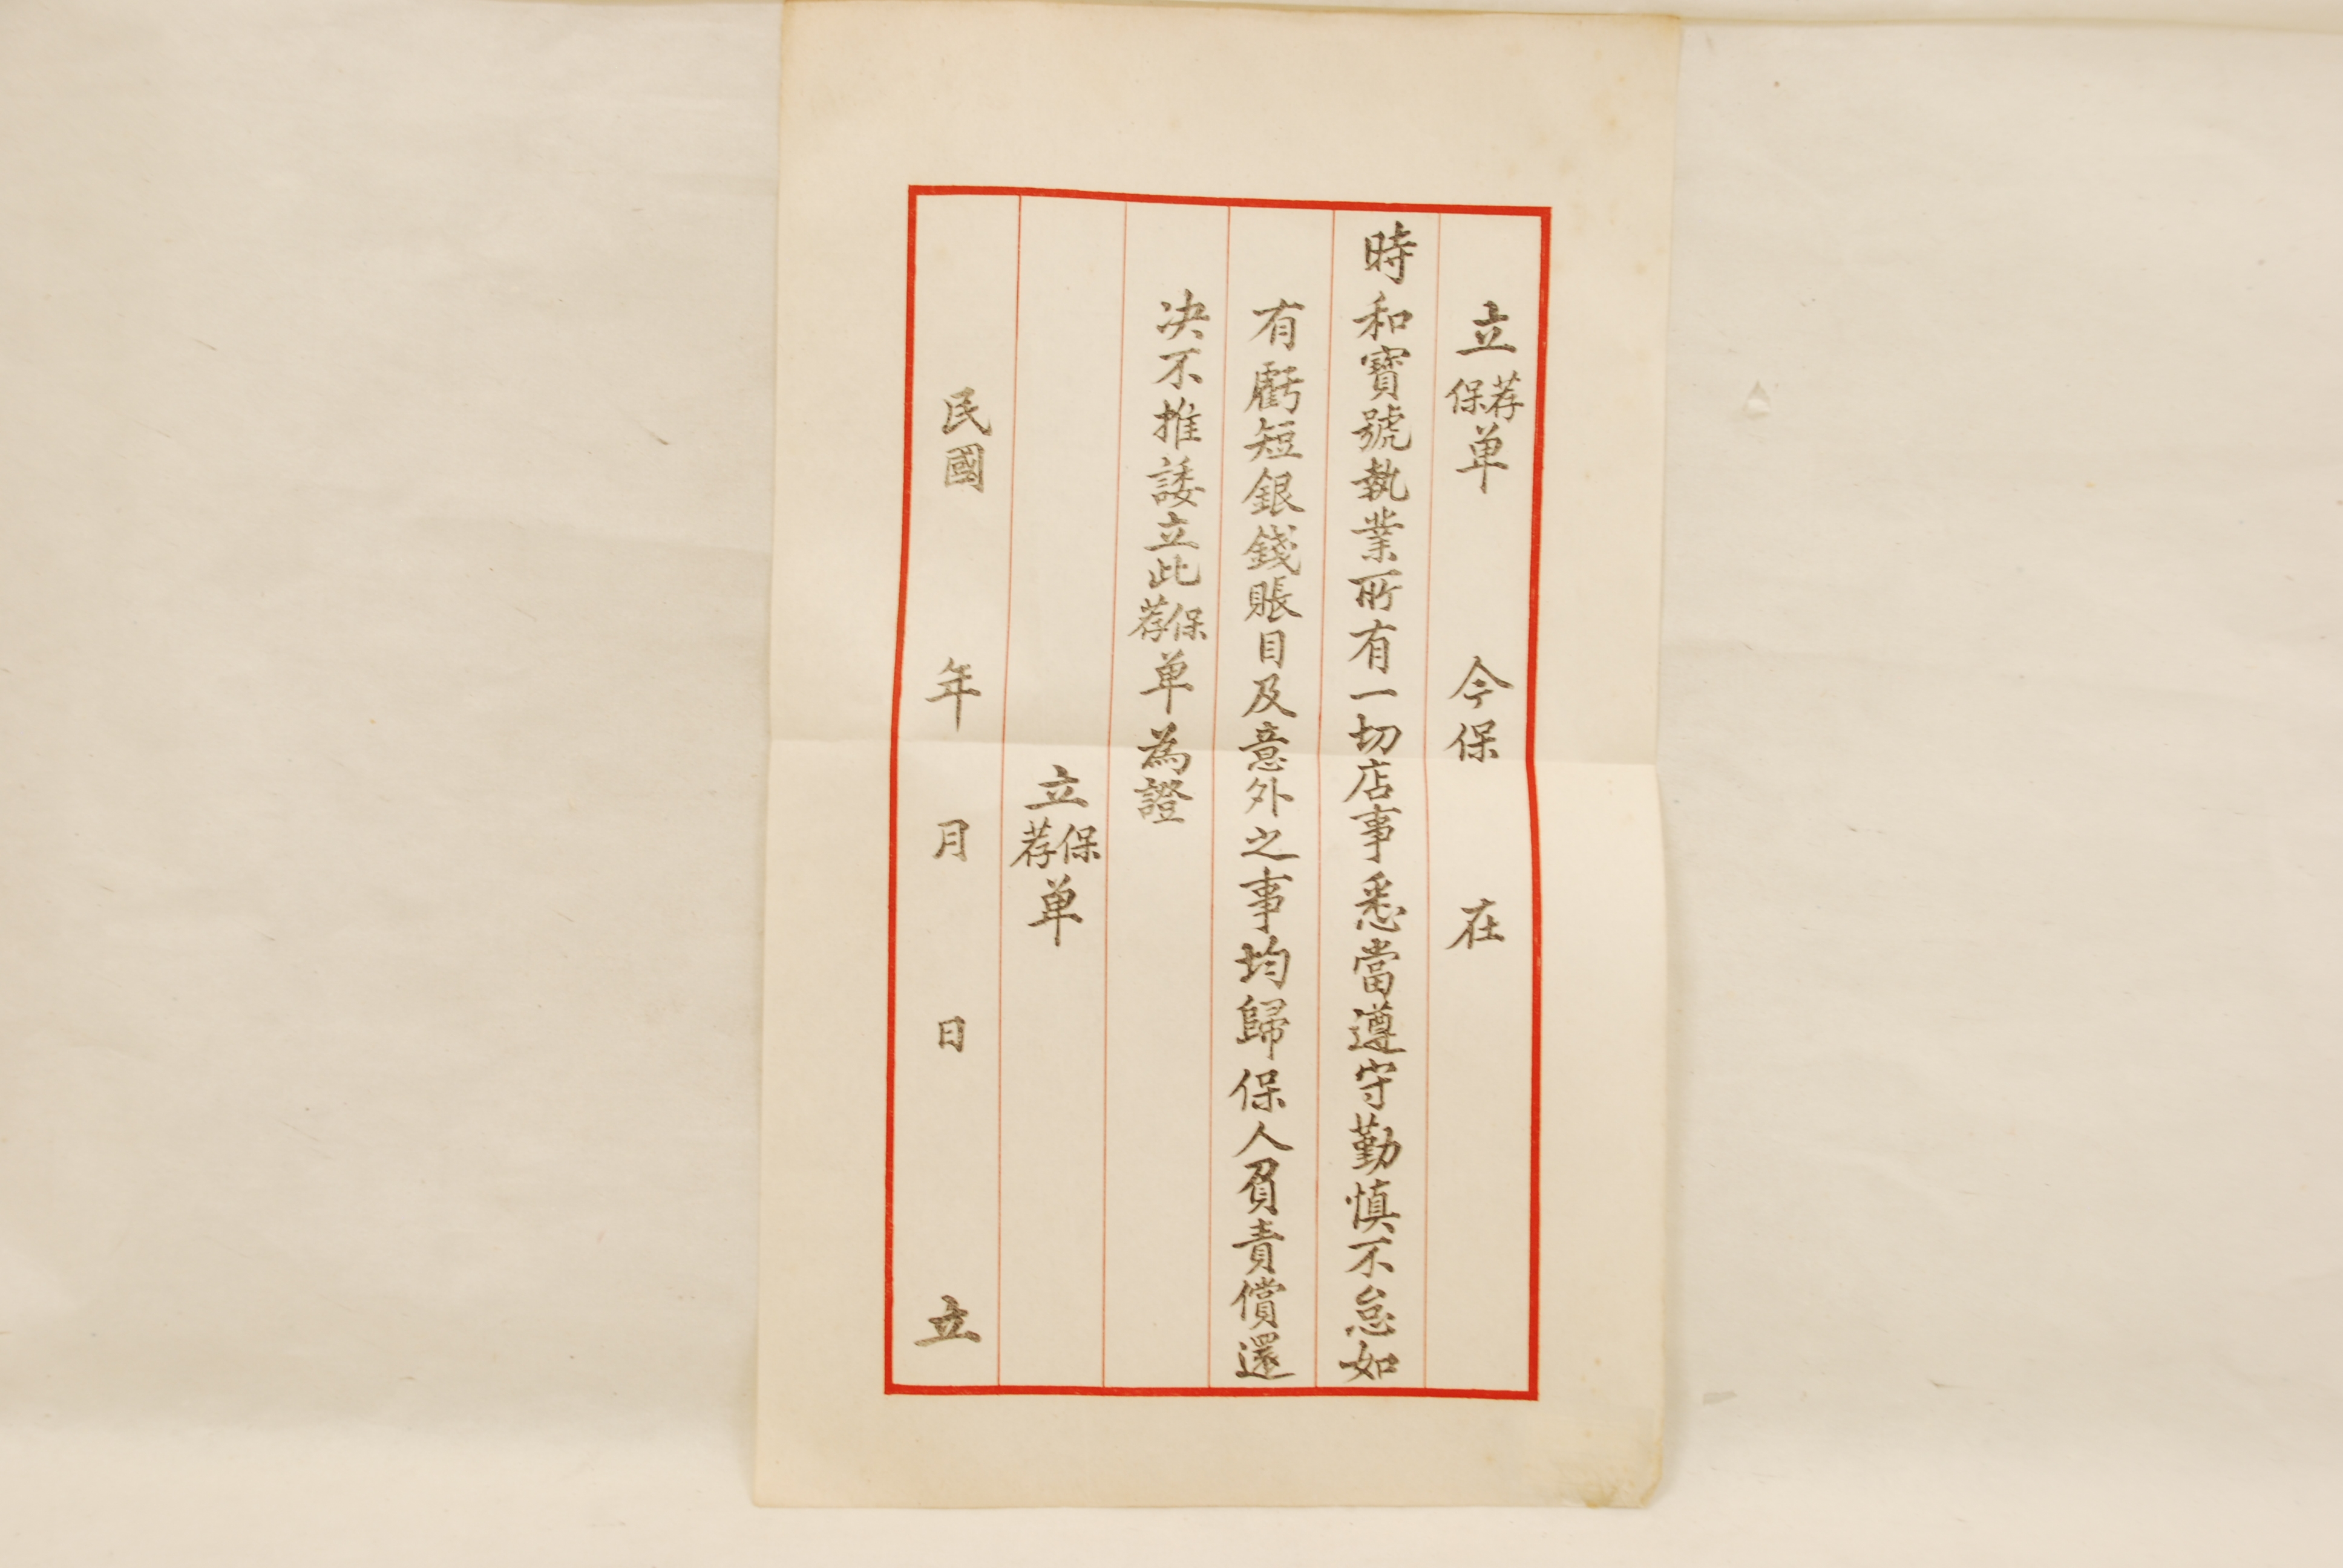 立荐保单 今保 在
時和寶號執業所有一切店事悉當遵守勤慎不怠如
有虧短銀錢賬目及意外之事均歸保人負責償還
决不推諉立此保荐单為證
立保荐单
民國 年 月 日 立